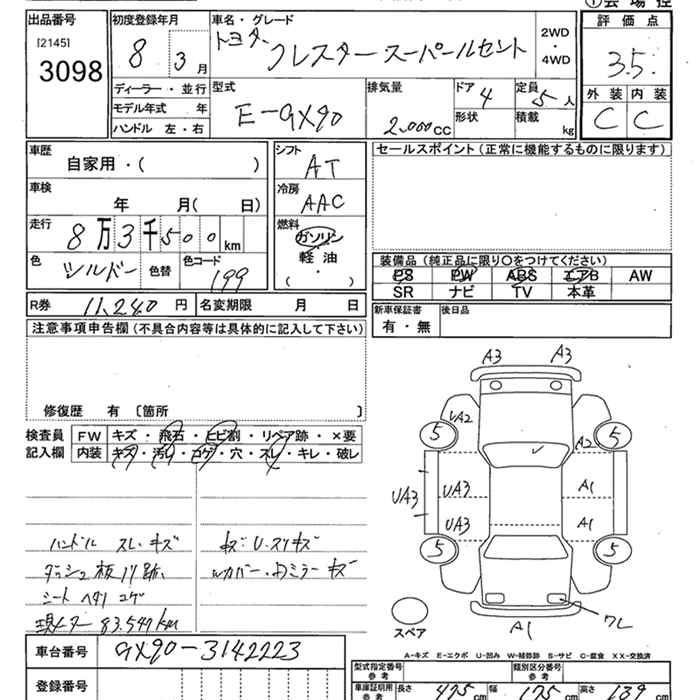 ①会場控
出品番号
[2145]
3098
初度登録年月
8 3 月
車名・グレード
トヨタ クレスタースーパールセント
2WD・4WD
評価点
3.5
ディーラー・並行
モデル年式 年
ハンドル 左・右
型式
E-GX90
排気量
2,000cc
ドア 4
形状
定員 5人
積載 kg
外装 内装
C C
車歴
自家用・( )
車検
年 月( 日)
走行
8万3千500km
色 シルバー
色替
色コード 199
シフト
AT
冷房
AAC
燃料
ガソリン
軽油
( ・ )
セールスポイント(正常に機能するものに限ります)
装備品(純正品に限り○をつけてください)
PS PW ABS エアB AW
SR ナビ TV 本革
R券 11,240円
名変期限 月 日
新車保証書
有・無
後日品
注意事項申告欄(不具合内容等は具体的に記入して下さい)
修復歴 有 〔箇所 〕
検査員
記入欄
FW キズ・飛石・ヒビ割・リペア跡・×要
内装 キズ・汚れ・コゲ・穴・スレ・キレ・破レ
ハンドル スレ・キズ
ダッシュ板ハリ跡
シート ヘタリ コゲ
現メーター 83,547km
キズ・U・スリキズ
Wカバー・Dミラーキズ
A3 A3
UA2
5 5
UA3 UA3 A1
UA3 A1
5 5
ワレ
A1
スペア
A-キズ E-エクボ U-凹み W-補修跡 S-サビ C-腐食 XX-交換済
車台番号
GX90-3142223
登録番号
型式指定番号
参考
類別区分番号
参考
車庫証明用
参考
長さ 475cm 幅 175cm 高さ 139cm